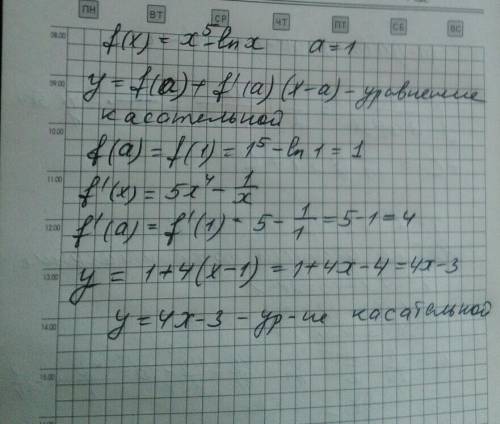 ПН ВТ СР ЧТ ПТ СБ ВС
08.00 f(x) = x⁵-ln x a = 1
09.00 y = f(a) + f'(a) (x-a) - уравнение
касательной
10.00
f(a) = f(1) = 1⁵ - ln 1 = 1
11.00 f'(x) = 5x⁴ - 1/x
12.00 f'(a) = f'(1) = 5 - 1/1 = 5-1 = 4
13.00 y = 1+4(x-1) = 1+4x-4 = 4x-3
14.00 y = 4x-3 - ур-ие касательной
15.00